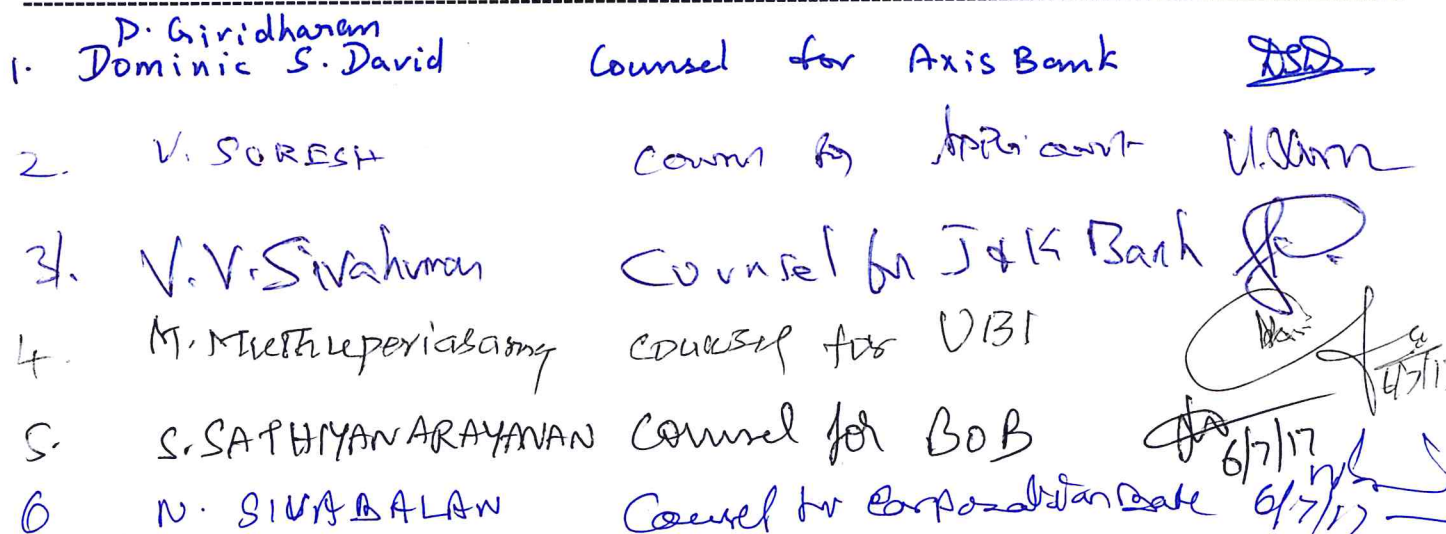 D. Giridharan
1. Dominic S. David Counsel for Axis Bank DSD
2. V. SURESH Counsel for Applicant
3. V.V. Sivakumar Counsel for J & K Bank
4. M. Muthuperiasamy counsel for UBI 6/7/17
5. S. SATHIYANARAYANAN Counsel for BOB 6/7/17
6 N. SIVABALAN Counsel for Corporation Bank 6/7/17